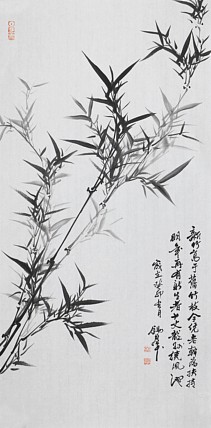 新竹高于舊竹枝全凭老幹為扶持
明年再有新生者十丈龍孫繞鳳池
歲在癸卯月